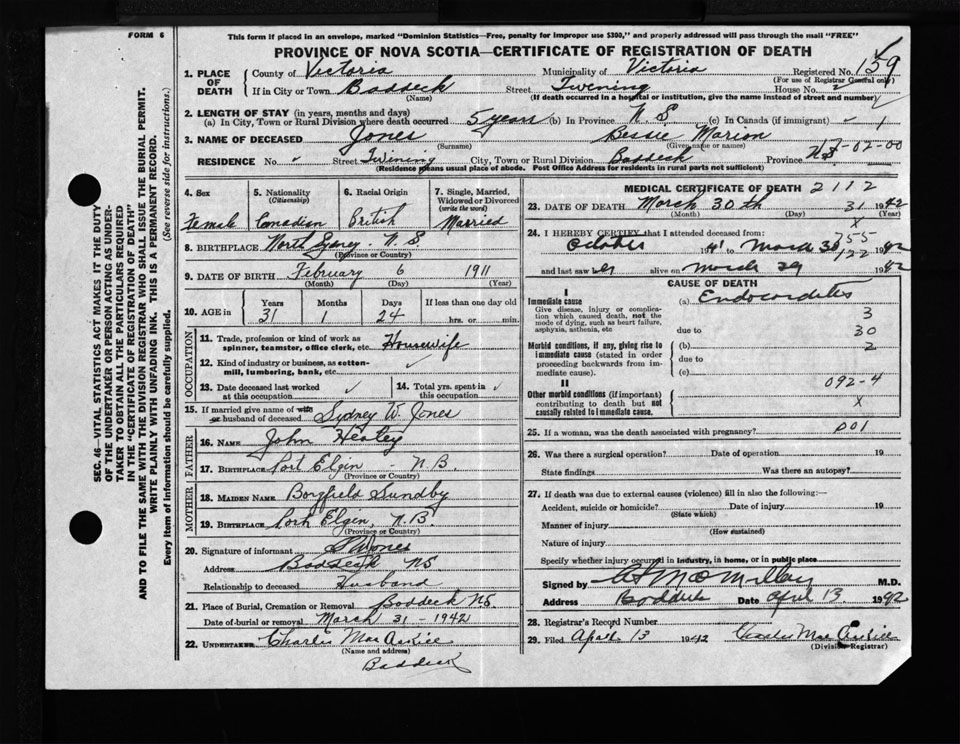 FORM 6
This form if placed in an envelope, marked "Dominion Statistics—Free, penalty for improper use $300," and properly addressed will pass through the mail "FREE"
PROVINCE OF NOVA SCOTIA—CERTIFICATE OF REGISTRATION OF DEATH
SEC. 46—VITAL STATISTICS ACT MAKES IT THE DUTY
OF THE UNDERTAKER OR PERSON ACTING AS UNDER-
TAKER TO OBTAIN ALL THE PARTICULARS REQUIRED
IN THE "CERTIFICATE OF REGISTRATION OF DEATH"
AND TO FILE THE SAME WITH THE DIVISION REGISTRAR WHO SHALL ISSUE THE BURIAL PERMIT.
WRITE PLAINLY WITH UNFADING INK. THIS IS A PERMANENT RECORD.
Every item of information should be carefully supplied. (See reverse side for instructions.)
1. PLACE OF DEATH County of Victoria Municipality of Victoria Registered No. 159
(For use of Registrar General only)
If in City or Town Baddeck Street Twining House No. 2
(Name) (If death occurred in a hospital or institution, give the name instead of street and number)
2. LENGTH OF STAY (in years, months and days)
(a) In City, Town or Rural Division where death occurred 5 years (b) In Province N.S (c) In Canada (if immigrant) - 1
3. NAME OF DECEASED Jones Bessie Marion
(Surname) (Given name or names)
RESIDENCE No. " Street Twining City, Town or Rural Division Baddeck Province NS -02-00
(Residence means usual place of abode. Post Office Address for residents in rural parts not sufficient)
4. Sex Female
5. Nationality (Citizenship) Canadian
6. Racial Origin British
7. Single, Married, Widowed or Divorced (write the word) Married
8. BIRTHPLACE North Sydney - N.S
(Province or Country)
9. DATE OF BIRTH February 6 1911
(Month) (Day) (Year)
10. AGE in Years 31 Months 1 Days 24 If less than one day old hrs. or min.
OCCUPATION
11. Trade, profession or kind of work as spinner, teamster, office clerk, etc. Housewife
12. Kind of industry or business, as cotton-mill, lumbering, bank, etc. ✓
13. Date deceased last worked at this occupation ✓
14. Total yrs. spent in this occupation ✓
15. If married give name of wife or husband of deceased Sydney W. Jones
FATHER
16. NAME John
17. BIRTHPLACE Port Elgin - N.B.
(Province or Country)
MOTHER
18. MAIDEN NAME
19. BIRTHPLACE Port Elgin, N.B.
(Province or Country)
20. Signature of informant Jones
Address Baddeck NS
Relationship to deceased Husband
21. Place of Burial, Cremation or Removal Baddeck NS.
Date of burial or removal March 31 - 1942
22. UNDERTAKER Charles MacAskill
(Name and address)
Baddeck
MEDICAL CERTIFICATE OF DEATH 2112
23. DATE OF DEATH March 30th 31 1942
(Month) (Day) (Year)
x
24. I HEREBY CERTIFY that I attended deceased from: 755
October 1941 to March 30 122 1942
and last saw her alive on March 29 1942
CAUSE OF DEATH
I
Immediate cause (a) Endocarditis
Give disease, injury or complication which caused death, not the mode of dying, such as heart failure, asphyxia, asthenia, etc 3
due to 30
Morbid conditions, if any, giving rise to immediate cause (stated in order proceeding backwards from immediate cause). (b) 2
due to
(c)
II 092-4
Other morbid conditions (if important) contributing to death but not causally related to immediate cause. x
25. If a woman, was the death associated with pregnancy? 001
26. Was there a surgical operation? Date of operation 19
State findings Was there an autopsy?
27. If death was due to external causes (violence) fill in also the following:—
Accident, suicide or homicide? Date of injury 19
(State which)
Manner of injury
(How sustained)
Nature of injury
Specify whether injury occurred in industry, in home, or in public place
Signed by McMillan M.D.
Address Baddeck Date April 13 1942
28. Registrar's Record Number
29. Filed April 13 1942 Charles MacAskill
(Division Registrar)